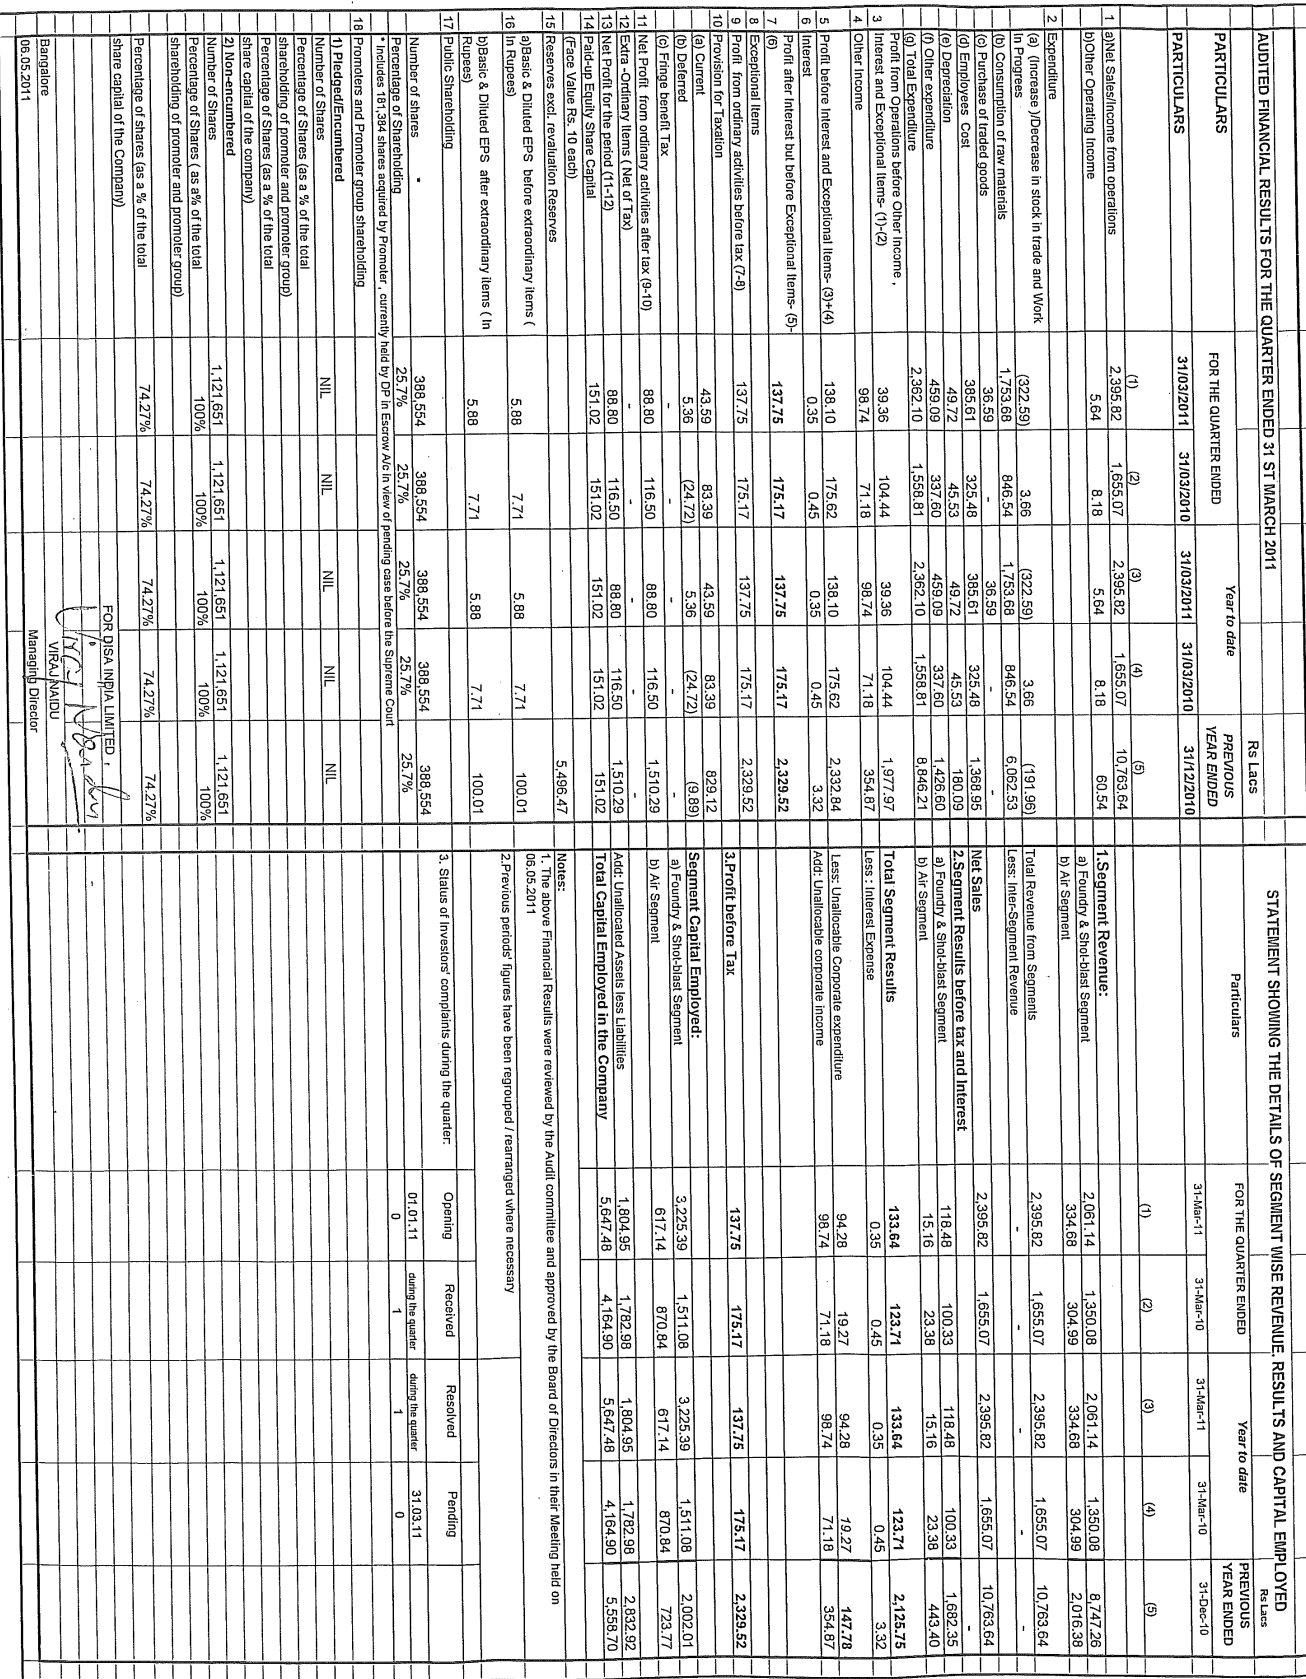 AUDITED FINANCIAL RESULTS FOR THE QUARTER ENDED 31 ST MARCH 2011
Rs Lacs
PARTICULARS FOR THE QUARTER ENDED Year to date PREVIOUS YEAR ENDED
PARTICULARS 31/03/2011 31/03/2010 31/03/2011 31/03/2010 31/12/2010
(1) (2) (3) (4) (5)
1 a)Net Sales/Income from operations 2,395.82 1,655.07 2,395.82 1,655.07 10,763.64
b)Other Operating Income 5.64 8.18 5.64 8.18 60.54
2 Expenditure
(a) (Increase )/Decrease in stock in trade and Work
In Progrees (322.59) 3.66 (322.59) 3.66 (191.96)
(b) Consumption of raw materials 1,753.68 846.54 1,753.68 846.54 6,062.53
(c) Purchase of traded goods 36.59 - 36.59 - -
(d) Employees Cost 385.61 325.48 385.61 325.48 1,368.95
(e) Depreciation 49.72 45.53 49.72 45.53 180.09
(f) Other expenditure 459.09 337.60 459.09 337.60 1,426.60
(g) Total Expenditure 2,362.10 1,558.81 2,362.10 1,558.81 8,846.21
3 Profit from Operations before Other Income ,
Interest and Exceptional Items- (1)-(2) 39.36 104.44 39.36 104.44 1,977.97
4 Other Income 98.74 71.18 98.74 71.18 354.87
5 Profit before Interest and Exceptional Items- (3)+(4) 138.10 175.62 138.10 175.62 2,332.84
6 Interest 0.35 0.45 0.35 0.45 3.32
7 Profit after Interest but before Exceptional Items- (5)-
(6) 137.75 175.17 137.75 175.17 2,329.52
8 Exceptional Items
9 Profit from ordinary activities before tax (7-8) 137.75 175.17 137.75 175.17 2,329.52
10 Provision for Taxation
(a) Current 43.59 83.39 43.59 83.39 829.12
(b) Deferred 5.36 (24.72) 5.36 (24.72) (9.89)
(c) Fringe benefit Tax - - - -
11 Net Profit from ordinary activities after tax (9-10) 88.80 116.50 88.80 116.50 1,510.29
12 Extra -Ordinary Items ( Net of Tax) - - - - -
13 Net Profit for the period (11-12) 88.80 116.50 88.80 116.50 1,510.29
14 Paid-up Equity Share Capital 151.02 151.02 151.02 151.02 151.02
(Face Value Rs. 10 each)
15 Reserves excl. revaluation Reserves 5,496.47
16 a)Basic & Diluted EPS before extraordinary items (
In Rupees) 5.88 7.71 5.88 7.71 100.01
b)Basic & Diluted EPS after extraordinary items ( In
Rupees) 5.88 7.71 5.88 7.71 100.01
17 Public Shareholding
Number of shares * 388,554 388,554 388,554 388,554 388,554
Percentage of Shareholding 25.7% 25.7% 25.7% 25.7% 25.7%
* Includes 181,384 shares acquired by Promoter , currently held by DP in Escrow A/c in view of pending case before the Supreme Court
18 Promoters and Promoter group shareholding
1) Pledged/Encumbered
Number of Shares NIL NIL NIL NIL NIL
Percentage of Shares (as a % of the total
shareholding of promoter and promoter group)
Percentage of Shares (as a % of the total
share capital of the company)
2) Non-encumbered
Number of Shares 1,121,651 1,121,651 1,121,651 1,121,651 1,121,651
Percentage of Shares ( as a% of the total 100% 100% 100% 100% 100%
shareholding of promoter and promoter group)
Percentage of shares (as a % of the total 74.27% 74.27% 74.27% 74.27% 74.27%
share capital of the Company)
FOR DISA INDIA LIMITED ,
VIRAJ NAIDU
Bangalore
06.05.2011 Managing Director
STATEMENT SHOWING THE DETAILS OF SEGMENT WISE REVENUE, RESULTS AND CAPITAL EMPLOYED
Rs Lacs
Particulars FOR THE QUARTER ENDED Year to date PREVIOUS YEAR ENDED
31-Mar-11 31-Mar-10 31-Mar-11 31-Mar-10 31-Dec-10
(1) (2) (3) (4) (5)
1.Segment Revenue:
a) Foundry & Shot-blast Segment 2,061.14 1,350.08 2,061.14 1,350.08 8,747.26
b) Air Segment 334.68 304.99 334.68 304.99 2,016.38
Total Revenue from Segments 2,395.82 1,655.07 2,395.82 1,655.07 10,763.64
Less: Inter-Segment Revenue - - - - -
Net Sales 2,395.82 1,655.07 2,395.82 1,655.07 10,763.64
2.Segment Results before tax and Interest
a) Foundry & Shot-blast Segment 118.48 100.33 118.48 100.33 1,682.35
b) Air Segment 15.16 23.38 15.16 23.38 443.40
Total Segment Results 133.64 123.71 133.64 123.71 2,125.75
Less : Interest Expense 0.35 0.45 0.35 0.45 3.32
Less: Unallocable Corporate expenditure 94.28 19.27 94.28 19.27 147.78
Add: Unallocable corporate income 98.74 71.18 98.74 71.18 354.87
3.Profit before Tax 137.75 175.17 137.75 175.17 2,329.52
Segment Capital Employed:
a) Foundry & Shot-blast Segment 3,225.39 1,511.08 3,225.39 1,511.08 2,002.01
b) Air Segment 617.14 870.84 617.14 870.84 723.77
Add: Unallocated Assets less Liabilities 1,804.95 1,782.98 1,804.95 1,782.98 2,832.92
Total Capital Employed in the Company 5,647.48 4,164.90 5,647.48 4,164.90 5,558.70
Notes:
1. The above Financial Results were reviewed by the Audit committee and approved by the Board of Directors in their Meeting held on
06.05.2011
2.Previous periods' figures have been regrouped / rearranged where necessary
3. Status of Investors' complaints during the quarter: Opening Received Resolved Pending
01.01.11 during the quarter during the quarter 31.03.11
0 1 1 0